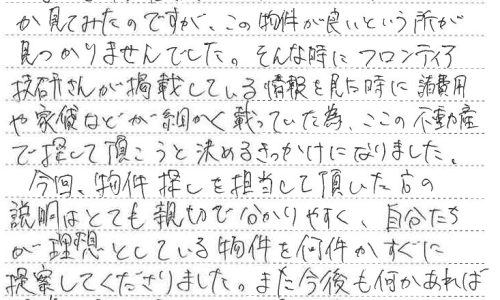 か見てみたのですが、この物件が良いという所が
見つかりませんでした。そんな時にフロンティア
技研さんが掲載している情報を見た時に諸費用
や家賃などが細かく載っていた為、ここの不動産
で探して頂こうと決めるきっかけになりました。
今回、物件探しを担当して頂いた方の
説明はとても親切で分かりやすく、自分たち
が理想としている物件を何件かすぐに
提案してくださりました。また今後も何かあれば